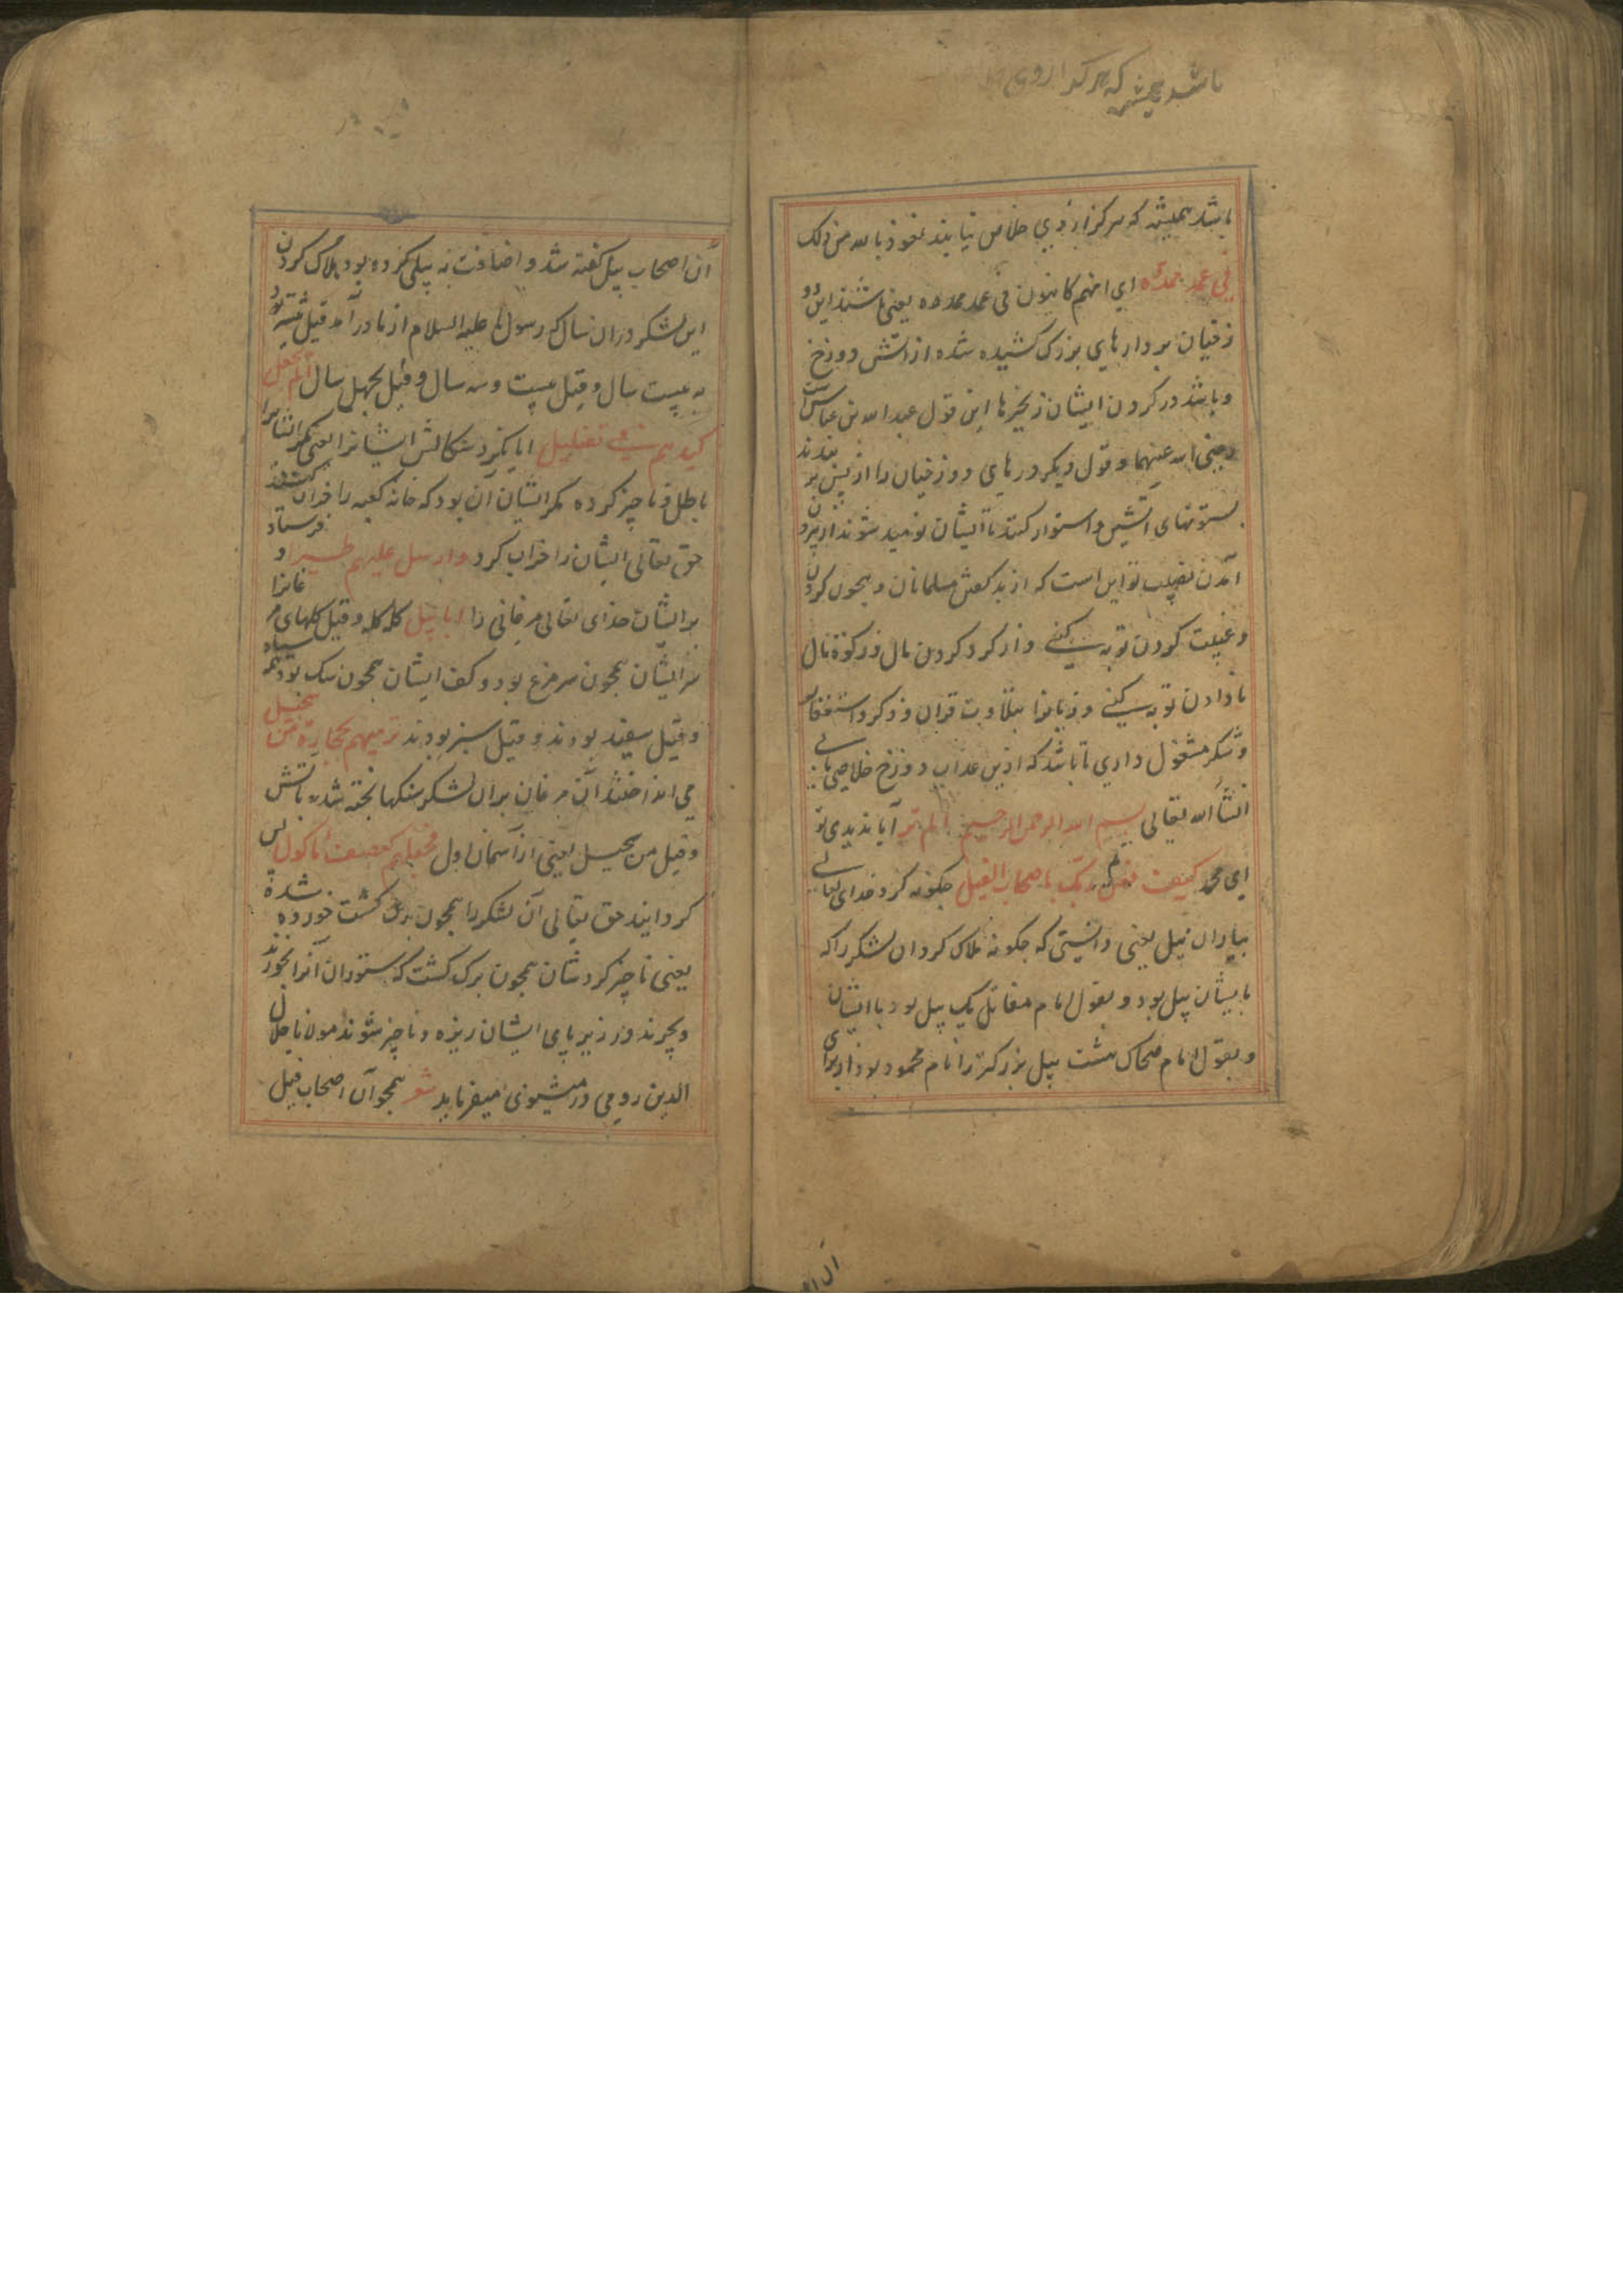 باشد همیشه که هرکز از وی
باشد همیشه که هرکز ازوی خلاص نیابند نعوذ بالله من ذلک
في عمد ممددة ای انهم کاینون فی عمد ممدده یعنی باشند این دو
زخیان بر دارهای بزرک کشیده شده از اتش دوزخ
و باشد در کردن ایشان زنجیرها این قول عبدالله بن عباس است
رضی الله عنهما و قول دیکر درهای دوزخیان را از پس بر بندند
بستونهای اتشین و استوار کنند تا ایشان نومید شوند از بیرون
آمدن نصیب تو این است که از بد کفتن مسلمانان و هجوی کردن
و غیبت کردن توبه کنی و از کرد کردن مال و زکوة مال
نادادن توبه کنی و زبانرا بتلاوت قران و ذکر و استغفار
و شکر مشغول داری تا باشد که ازین عذاب دوزخ خلاصی یابی
انشاء الله تعالی بسم الله الرحمن الرحیم الم تر آیا ندیدی تو
ای محمد کیف فعل ربک باصحاب الفیل چکونه کرد خدای تعالی
بیاران پیل یعنی دانستی که چکونه هلاک کرد ان لشکر را که
بایشان پیل بود و بقول امام مقاتل یک پیل بود با ایشان
و بقول امام ضحاک هشت پیل بزرکتر را نام محمود بود از برای
ان ا
آن اصحاب پیل کفته شد و اضافت به پیل کرده بود هلاک کردن
این لشکر در ان سال که رسول ما علیه السلام از مادر آمد قیل پیشتر بود
به بیست سال و قیل بیست و سه سال و قیل بچهل سال الم یجعل
کیدهم فی تضلیل ایا نکرد سکالش ایشانرا یعنی مکر ایشانرا
باطل و ناچیز کرده مکر ایشان آن بود که خانه کعبه را خراب کنند
حق تعالی ایشان را خراب کرد وارسل علیهم طیرا و فرستاد
بر ایشان خدای تعالی مرغانی را ابابیل کله کله و قیل کلهای مرغانرا
سر ایشان همچون سر مرغ بود و کف ایشان همچون سک بود همه سیاه
و قیل سفید بودند و قیل سبز بودند ترمیهم بحجارة من سجیل
می انداختند آن مرغان بران لشکر سنکها پخته شده باتش
و قیل من سجیل یعنی از آسمان اول فجعلهم کعصف ماکول پس
کردانید حق تعالی آن لشکر را همچون برک کشت خورده شده
یعنی ناچیز کرد شان همچون برک کشت که ستوران آنرا بخورند
و بچرند و در زیر پای ایشان ریزه و ناچیز شوند مولانا جلال
الدین رومی در مثنوی میفرماید شعر همچو آن اصحاب فیل